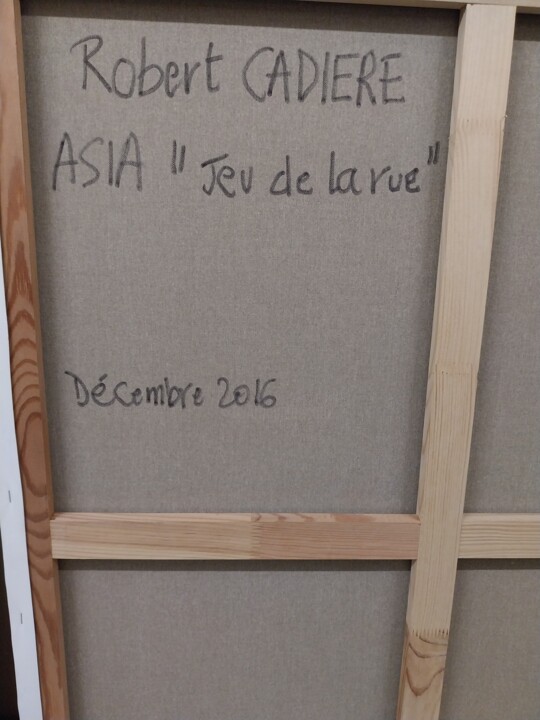 Robert CADIERE
ASIA "Jeu de la rue"
Décembre 2016